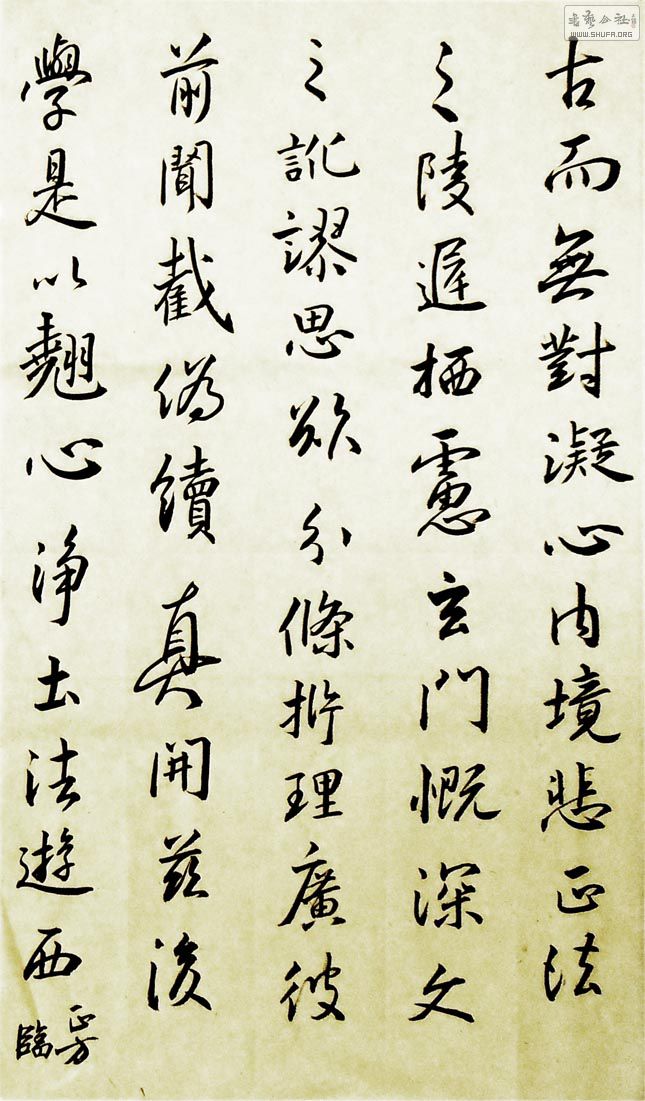 古而無對凝心内境悲正法
之陵遲栖慮玄門慨深文
之訛謬思欲分條析理廣彼
前聞截偽續真開兹後
學是以翹心浄土法遊西
正方臨
書藝公社
WWW.SHUFA.ORG